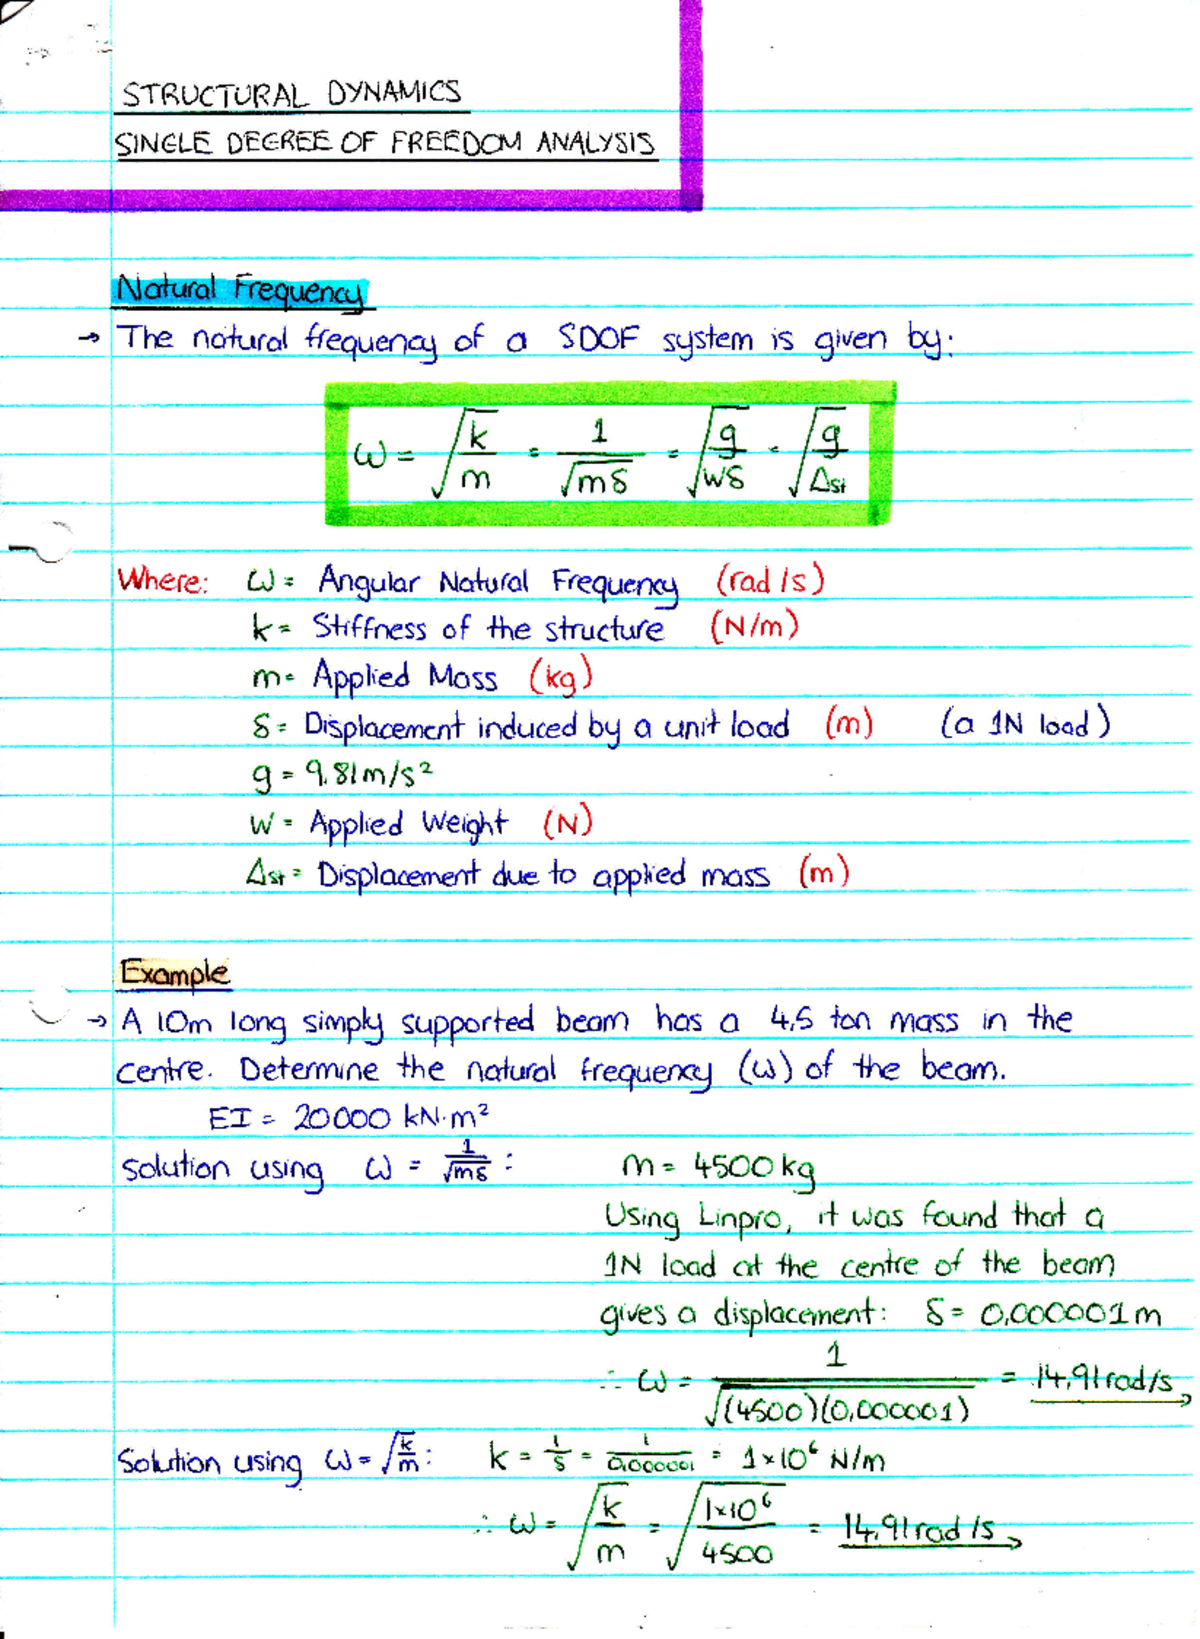 STRUCTURAL DYNAMICS
SINGLE DEGREE OF FREEDOM ANALYSIS
Natural Frequency
→ The natural frequency of a SDOF system is given by:
ω = √(k/m) = 1/√(mδ) = √(g/wδ) = √(g/Δst)
Where: ω = Angular Natural Frequency (rad/s)
k = Stiffness of the structure (N/m)
m = Applied Mass (kg)
δ = Displacement induced by a unit load (m) (a 1N load)
g = 9.81m/s²
W = Applied Weight (N)
Δst = Displacement due to applied mass (m)
Example
→ A 10m long simply supported beam has a 4,5 ton mass in the
centre. Determine the natural frequency (ω) of the beam.
EI = 20000 kN·m²
solution using ω = 1/√(mδ) : m = 4500kg
Using Linpro, it was found that a
1N load at the centre of the beam
gives a displacement: δ = 0,000001m
∴ ω = 1/√((4500)(0,000001)) = 14,91rad/s
Solution using ω = √(k/m) : k = 1/δ = 1/0,000001 = 1×10⁶ N/m
∴ ω = √(k/m) = √(1×10⁶/4500) = 14,91rad/s